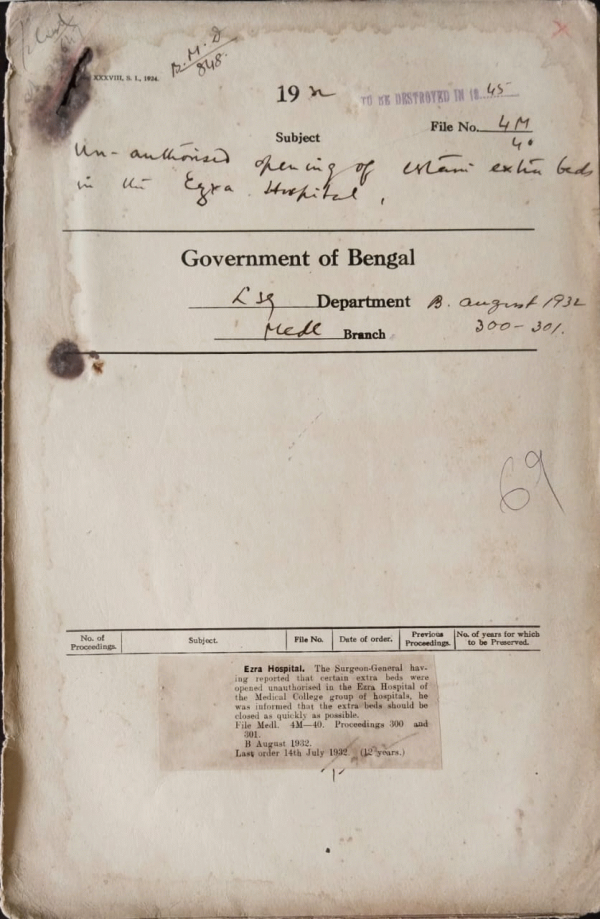 XXXVIII, S. I., 1934.
848.
1932
TO BE DESTROYED IN 19 45
File No. 4M
40
Subject
Un-authorised opening of certain extra beds
in the Ezra Hospital,
Government of Bengal
LSG Department B. August 1932
Medl Branch 300-301.
69
No. of Proceedings.
Subject.
File No.
Date of order.
Previous Proceedings.
No. of years for which to be Preserved.
Ezra Hospital. The Surgeon-General hav-
ing reported that certain extra beds were
opened unauthorised in the Ezra Hospital of
the Medical College group of hospitals, he
was informed that the extra beds should be
closed as quickly as possible.
File Medl. 4M—40. Proceedings 300 and
301.
B August 1932.
Last order 14th July 1932 (12 years.)